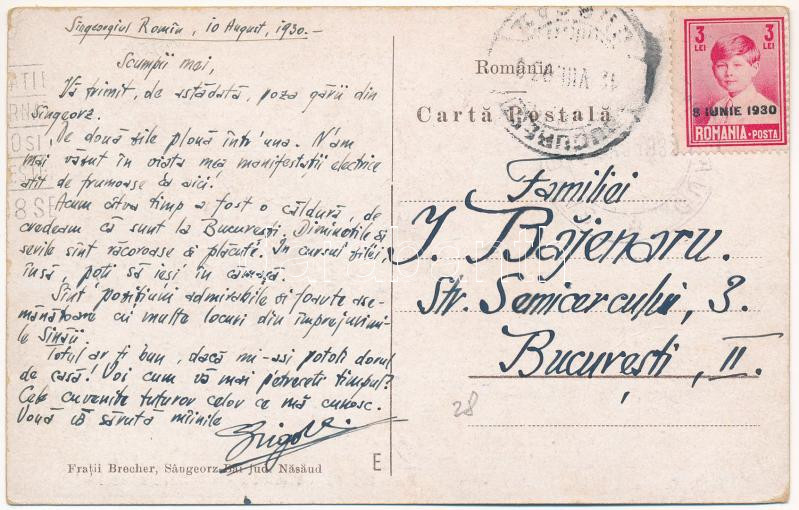 Sîngeorgiul Romîn, 10 August, 1930.—
Scumpii mei,
Vă trimit, de astădată, poza gării din
Sîngeorz.
De două zile plouă într'una. N'am
mai văzut în viața mea manifestații electrice
atît de frumoase ca aici.
Acum cîtva timp a fost o căldură, de
credeam că sunt la București. Diminețile și
serile sînt răcoroase și plăcute. In cursul zilei,
însă, poți să ieși în cămașă.
Sînt pozițiuni admirabile și foarte ase-
mănătoare cu multe locuri din împrejurimi-
le Sinăii
Totul ar fi bun, dacă mi-ași potoli dorul
de casă! Voi cum vă mai petreceți timpul?
Cele cuvenite tuturor celor ce mă cunosc.
Vouă vă sărută mîinile
Frații Brecher, Sângeorz-Băi jud. Năsăud
E
România
Cartă Poștală
BUCUREȘTI
3 LEI
3 LEI
8 IUNIE 1930
ROMANIA-POSTA
Familiei
I. Băjenaru.
Str. Semicercului, 3.
București, II.
28